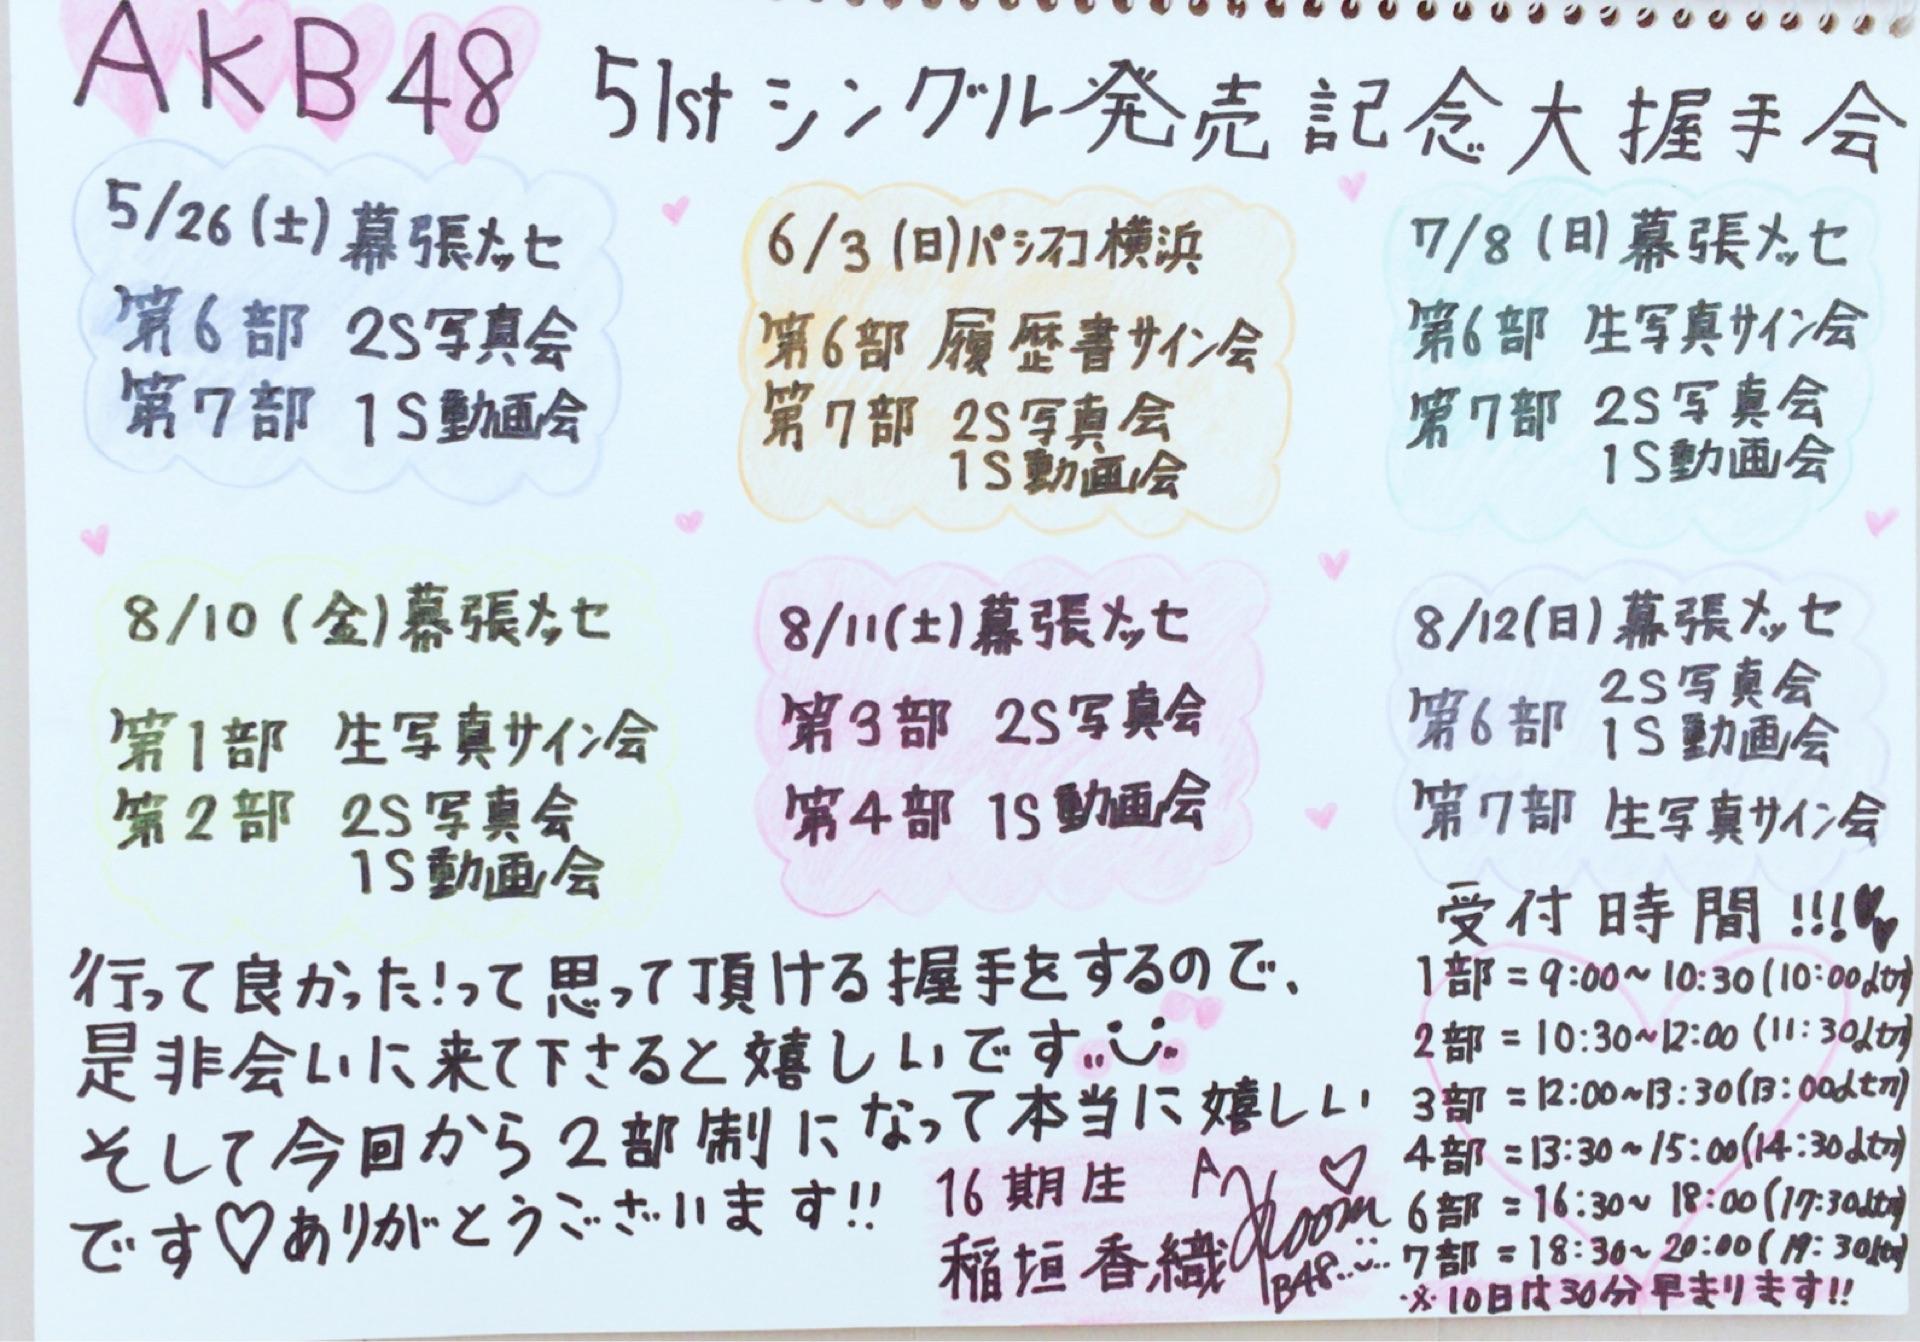 AKB48 51stシングル発売記念大握手会
5/26(土)幕張メッセ
第6部 2S写真会
第7部 1S動画会
6/3(日)パシフィコ横浜
第6部 履歴書サイン会
第7部 2S写真会
1S動画会
7/8(日)幕張メッセ
第6部 生写真サイン会
第7部 2S写真会
1S動画会
8/10(金)幕張メッセ
第1部 生写真サイン会
第2部 2S写真会
1S動画会
8/11(土)幕張メッセ
第3部 2S写真会
第4部 1S動画会
8/12(日)幕張メッセ
第6部 2S写真会
1S動画会
第7部 生写真サイン会
行って良かった!って思って頂ける握手をするので、
是非会いに来て下さると嬉しいです
そして今回から2部制になって本当に嬉しい
です♡ありがとうございます!!
16期生
稲垣香織
B48
受付時間!!!
1部=9:00~10:30(10:00〆切)
2部=10:30~12:00(11:30〆切)
3部=12:00~13:30(13:00〆切)
4部=13:30~15:00(14:30〆切)
6部=16:30~18:00(17:30〆切)
7部=18:30~20:00(19:30〆切)
※10日は30分早まります!!